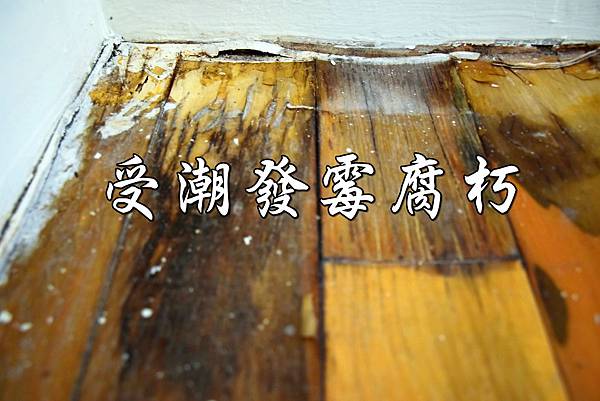 受潮發霉腐朽